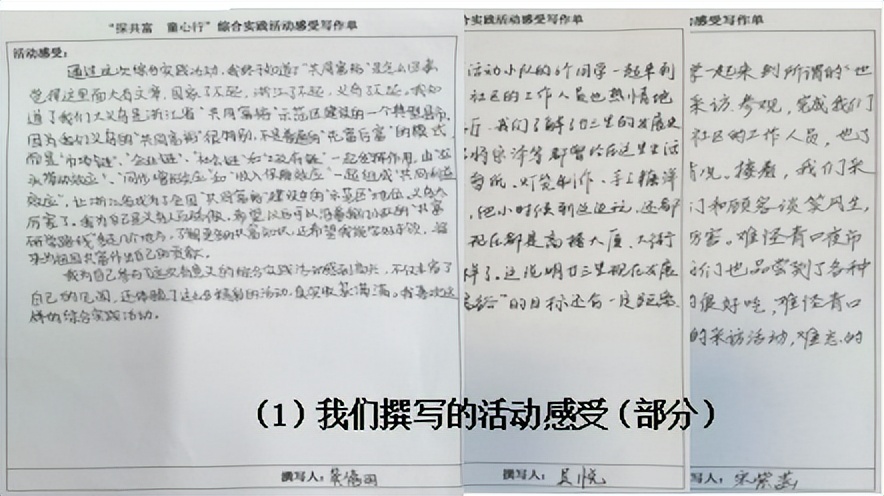 "探共富 童心行"综合实践活动感受写作单
活动感受：
通过这次综合实践活动，我终于知道了"共同富裕"是怎么回事
觉得这里面大有文章，国家了不起，浙江了不起，义乌了不起。我知
道了我们大义乌是浙江省"共同富裕"示范区建设的一个典型县市，
因为我们义乌的"共同富裕"很特别，不是普遍的"先富后富"的模式
而是"市场链"、"企业链"、"社会链"和"政府链"一起发挥作用，由"
头带动效应"、"同步富裕效应"和"收入保障效应"一起组成"共同利益
效应"，让浙江省成为了全国"共同富裕"建设中的"示范区"地位，义乌太
厉害了。我为自己是义乌人而骄傲，希望以后可以沿着我们小队的"共富
研学路线"多走几个地方，了解更多的共富知识，还希望我能学好本领，将
来为祖国共富作出自己的贡献。
我为自己参与了这次有意义的综合实践活动感到高兴，不仅丰富了
自己的见闻，还体验了这么多精彩的活动，真实收获满满。我喜欢这
样的综合实践活动。
撰写人：
合实践活动感受写作单
活动小队的6个同学一起来到
社区的工作人员也热情地
后，我们了解了廿三里的发展史
在这里生活
手工糖洋
，他小时候到这边玩，还都
现在都是高楼大厦、
样了。这说明廿三里现在发展
富裕"的目标还有一定距离
撰写人：吴悦
感受写作单
学一起来到所谓的"也
采访、参观，完成我们
社区的工作人员，也了
情况。接着，我们采
们和顾客谈笑风生，
厉害。难怪青口夜市
我们也品尝到了各种
的很好吃，难怪青口
的采访活动，难忘的
写人：宋紫
（1）我们撰写的活动感受（部分）